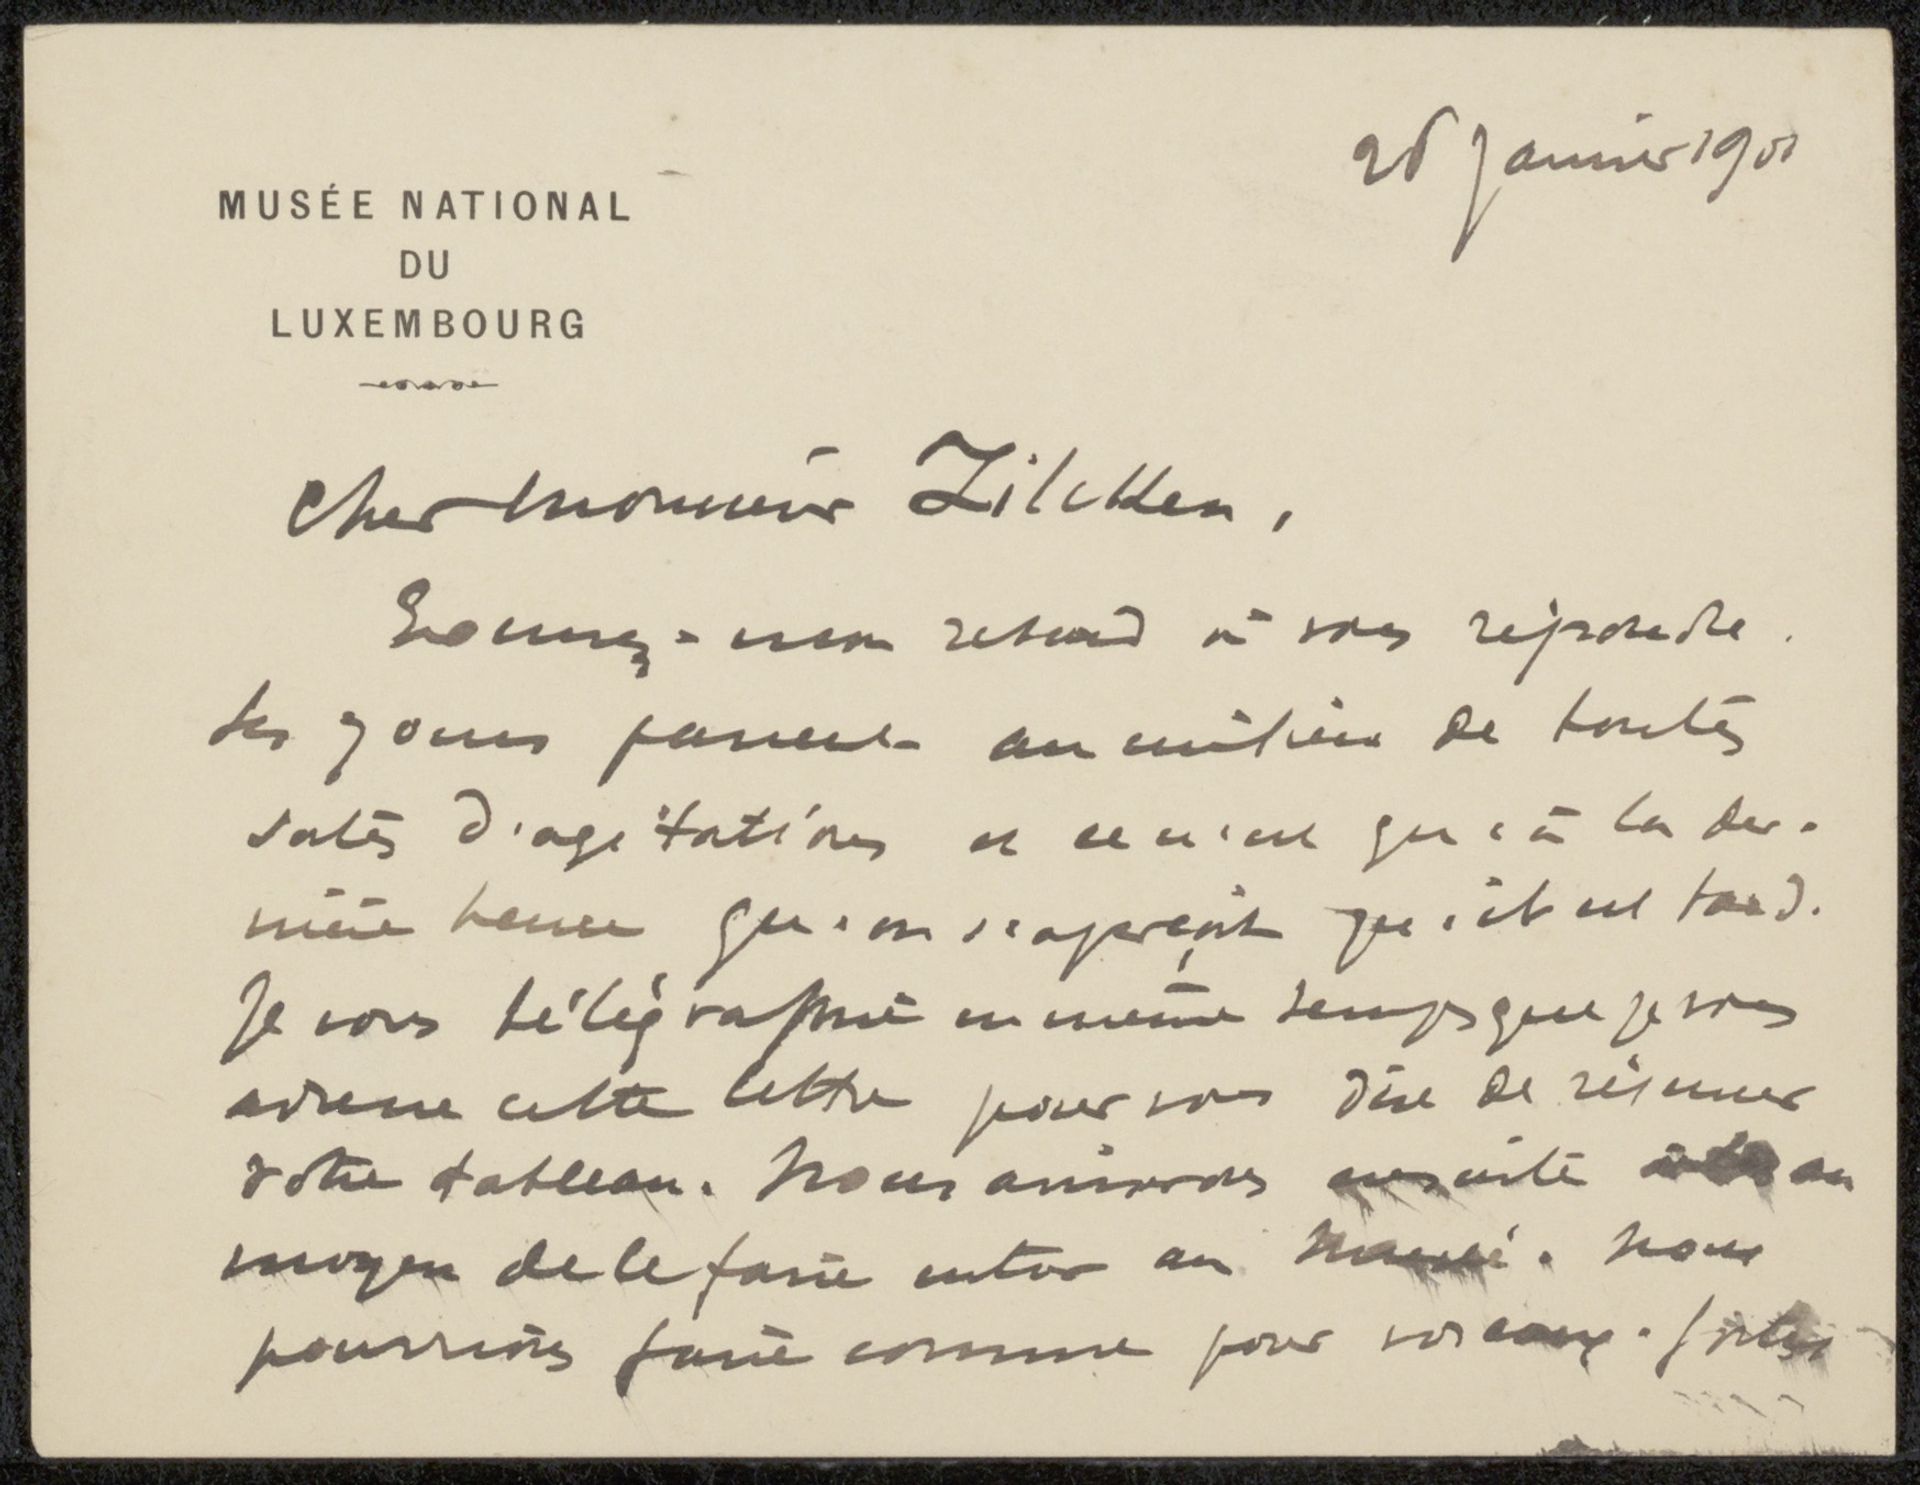 26 janvier 1901
MUSÉE NATIONAL
DU
LUXEMBOURG
Cher Monsieur Zilcken,
Excusez-mon retard à vous répondre.
Les jours passent au milieu de toutes
sortes d'agitations et ce n'est qu'à la der-
nière heure qu'on s'aperçoit qu'il est tard.
Je vous télégraphie en même temps que je vous
adresse cette lettre pour vous dire de
votre tableau. Nous aviserons ensuite au
moyen de le faire entrer au Musée. Nous
pourrions faire comme pour vos eaux-fortes